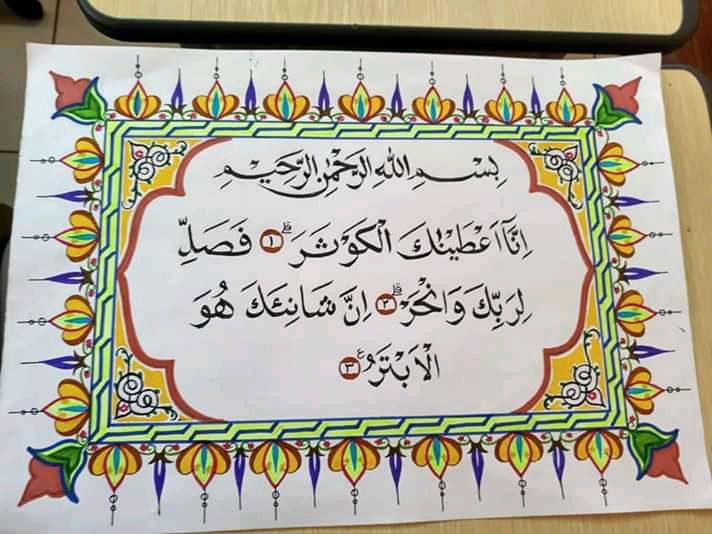 بِسْمِ اللهِ الرَّحْمٰنِ الرَّحِيْمِ
اِنَّآ اَعْطَيْنٰكَ الْكَوْثَرَۗ ١ فَصَلِّ
لِرَبِّكَ وَانْحَرْۗ ٢ اِنَّ شَانِئَكَ هُوَ
الْاَبْتَرُ ࣖ ٣